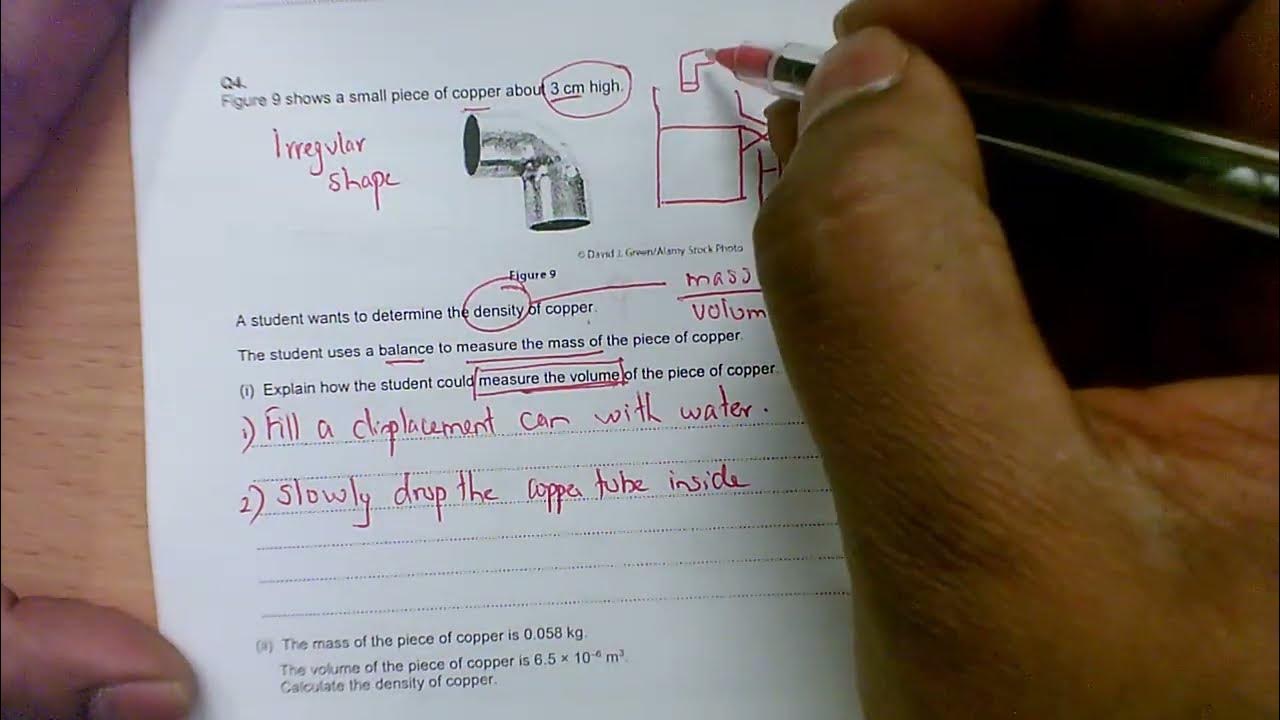 Q4.
Figure 9 shows a small piece of copper about 3 cm high.
Irregular
shape
© David J. Green/Alamy Stock Photo
Figure 9
mass
volum
A student wants to determine the density of copper.
The student uses a balance to measure the mass of the piece of copper.
(i) Explain how the student could measure the volume of the piece of copper.
1) Fill a displacement can with water.
2) Slowly drop the copper tube inside
(ii) The mass of the piece of copper is 0.058 kg.
The volume of the piece of copper is 6.5 × 10⁻⁶ m³.
Calculate the density of copper.